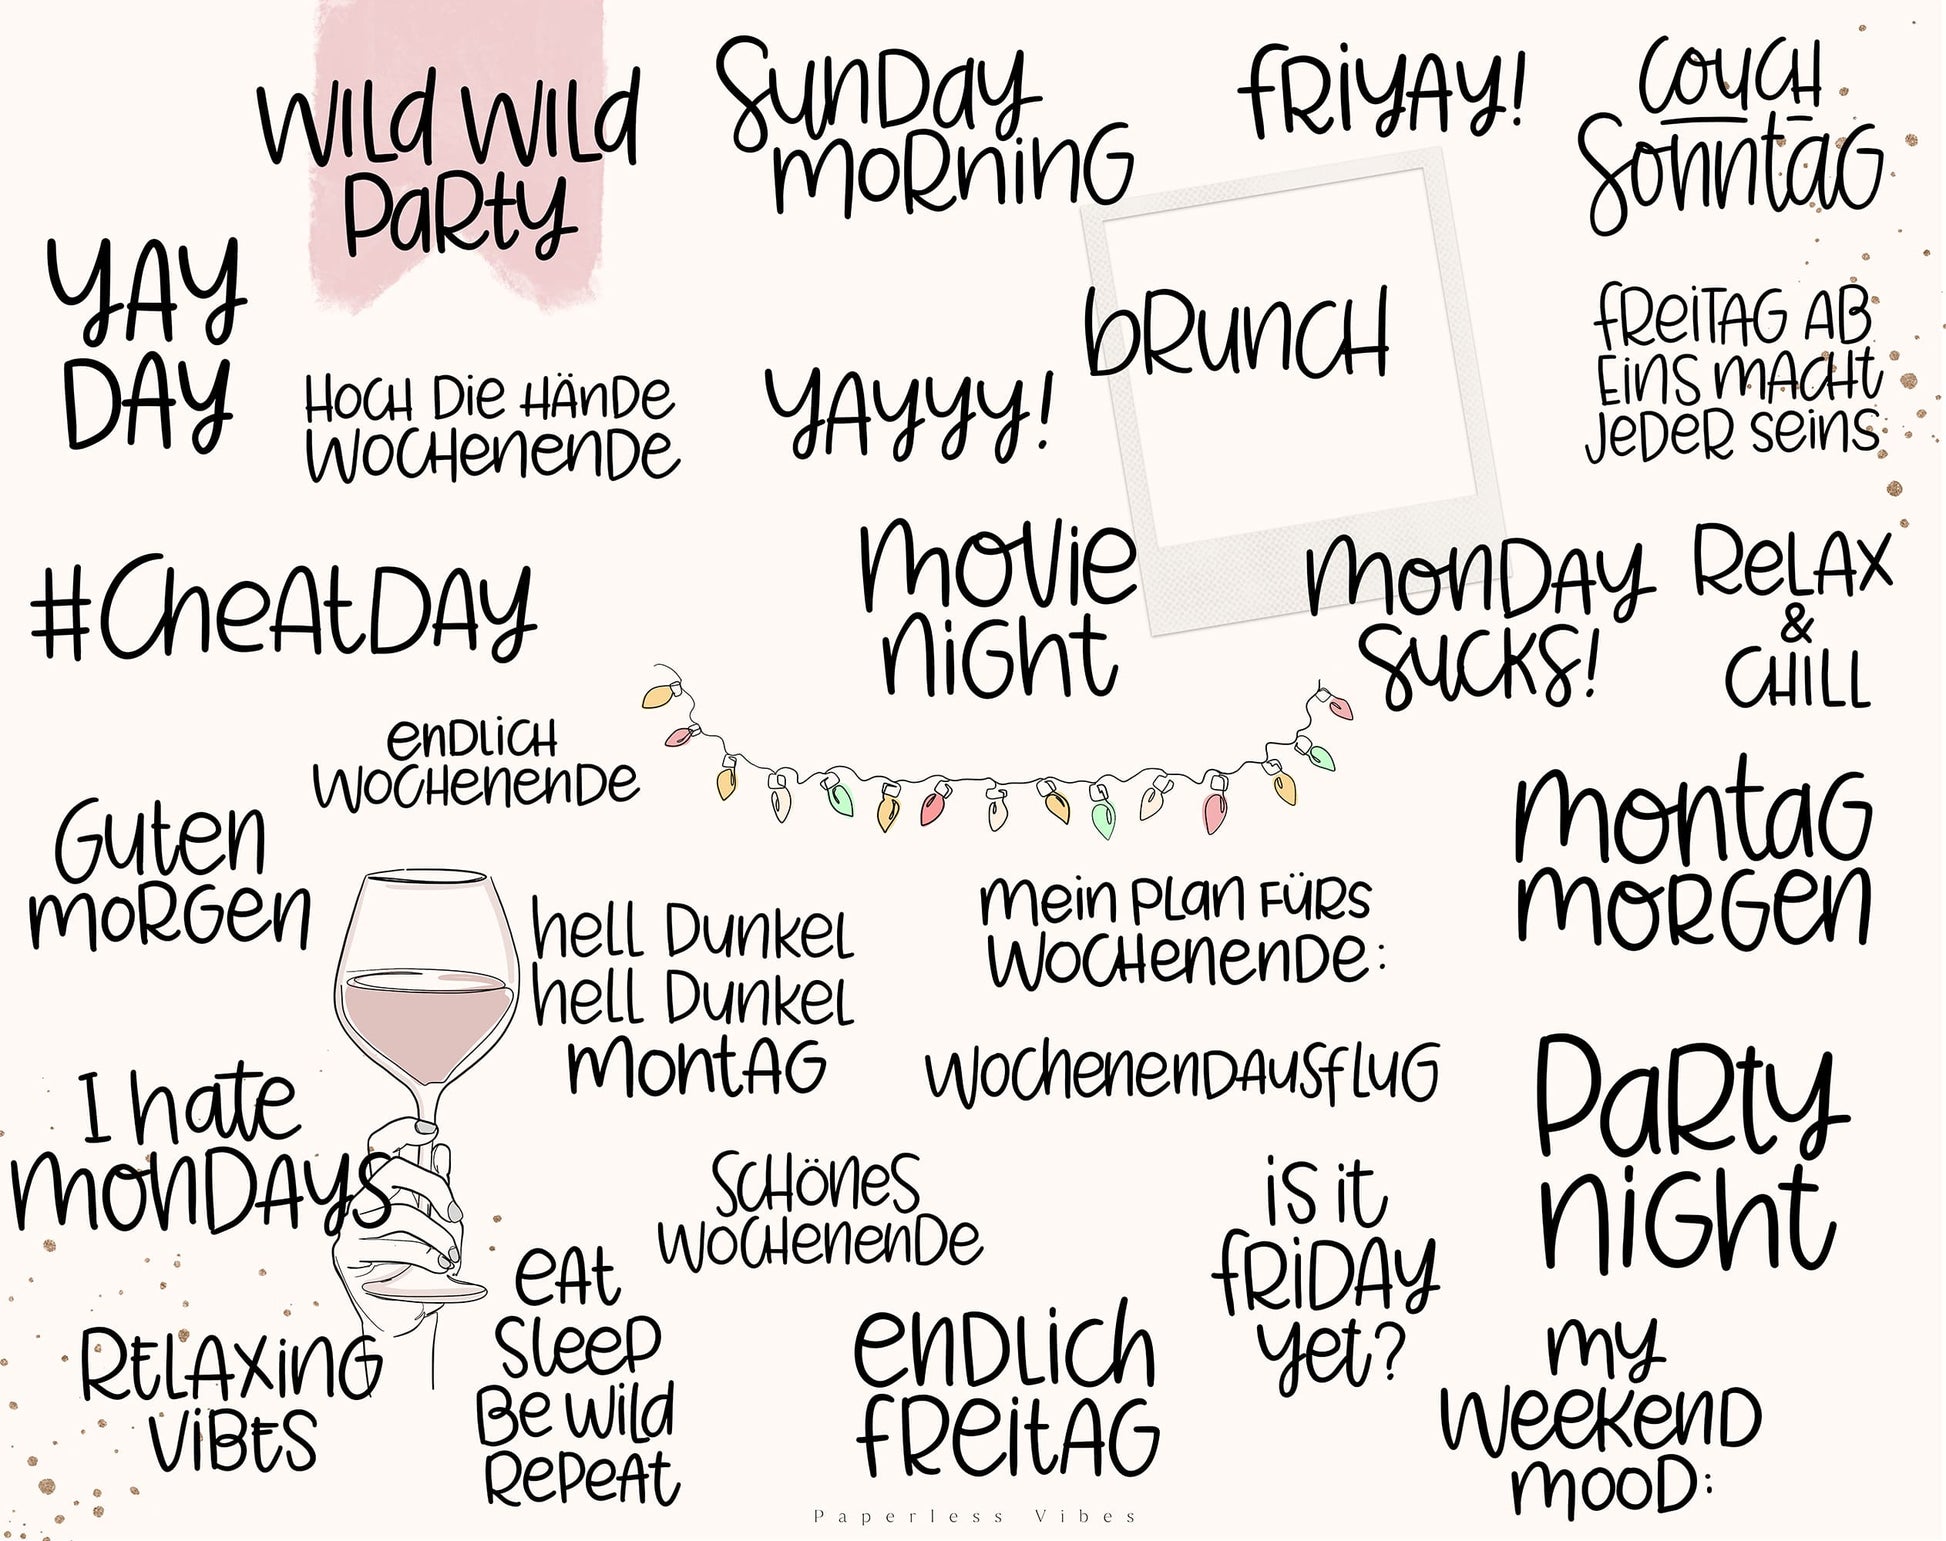 WILD WILD
PARTY
SUNDAY
MORNING
FRIYAY!
COUCH
SONNTAG
YAY
DAY
HOCH DIE HÄNDE
WOCHENENDE
YAYYY!
BRUNCH
FREITAG AB
EINS MACHT
JEDER SEINS
#CHEATDAY
MOVIE
NIGHT
MONDAY
SUCKS!
RELAX
&
CHILL
ENDLICH
WOCHENENDE
GUTEN
MORGEN
HELL DUNKEL
HELL DUNKEL
MONTAG
MEIN PLAN FÜRS
WOCHENENDE:
MONTAG
MORGEN
I HATE
MONDAYS
WOCHENENDAUSFLUG
PARTY
NIGHT
SCHÖNES
WOCHENENDE
IS IT
FRIDAY
YET?
RELAXING
VIBES
EAT
SLEEP
BE WILD
REPEAT
ENDLICH
FREITAG
MY
WEEKEND
MOOD:
Paperless Vibes